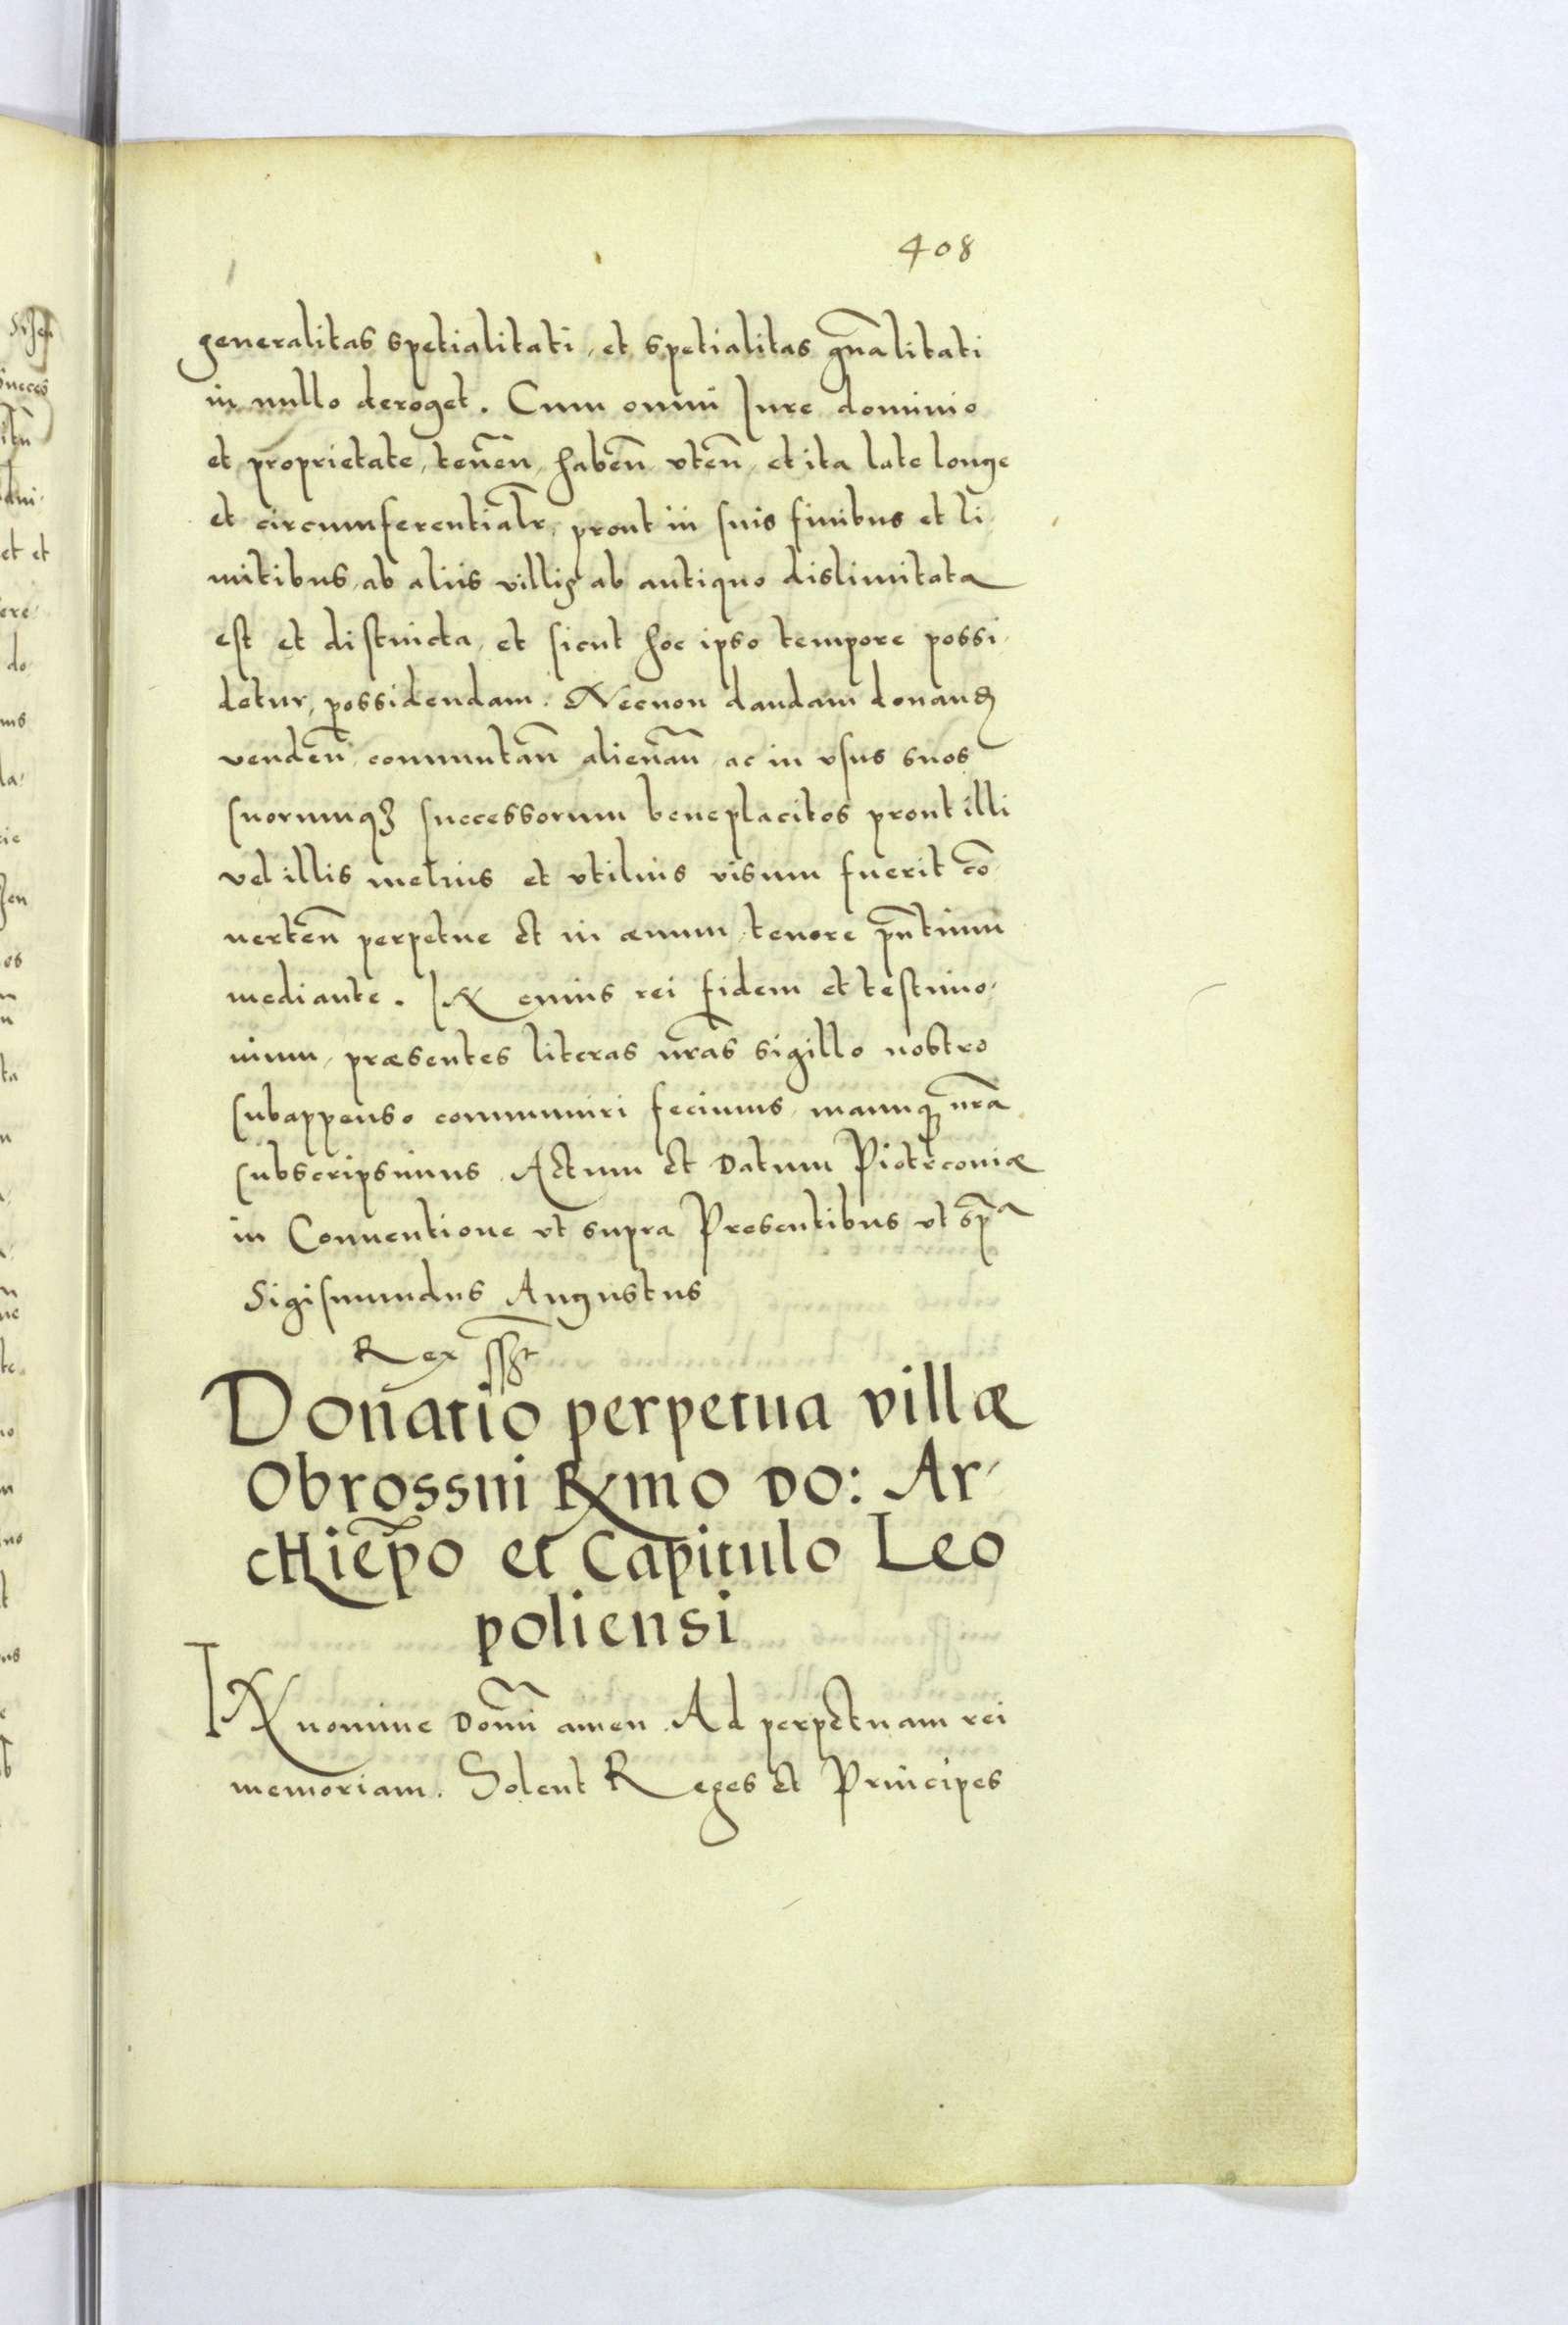 408
generalitas spetialitati, et spetialitas gnãlitati
in nullo deroget. Cum omni Iure dominio
et proprietate, teneñ, habeñ, vteñ, et ita late longe
et circumferentialr̃, prout in suis finibus et li-
mitibus, ab aliis villis ab antiquo dislimitata
est et distincta, et sicut hoc ipso tempore possi-
detur, possidendam. Necnon dandam donanđ
vendeñ, commutañ alienañ, ac in vsus suos
suorumqꝫ successorum beneplacitos prout illi
vel illis melius et vtilius visum fuerit cõ-
uerteñ perpetue et in æuum, tenore pñtium
mediante. IN cuius rei fidem et testimo-
nium, præsentes literas nr̃as sigillo nostro
subappenso communiri fecimus, manuqꝫ nr̃a
subscripsimus. Actum et Datum Piotrcouiæ
in Conuentione vt supra Presentibus vt spͣ
Sigismundus Augustus
Rex sst
Donatio perpetua villæ
Obrossni Rxmo DO: Ar-
cHiepõ et Capitulo Leo
poliensi
IN nomine Domĩ amen. Ad perpetuam rei
memoriam. Solent Reges et Principes